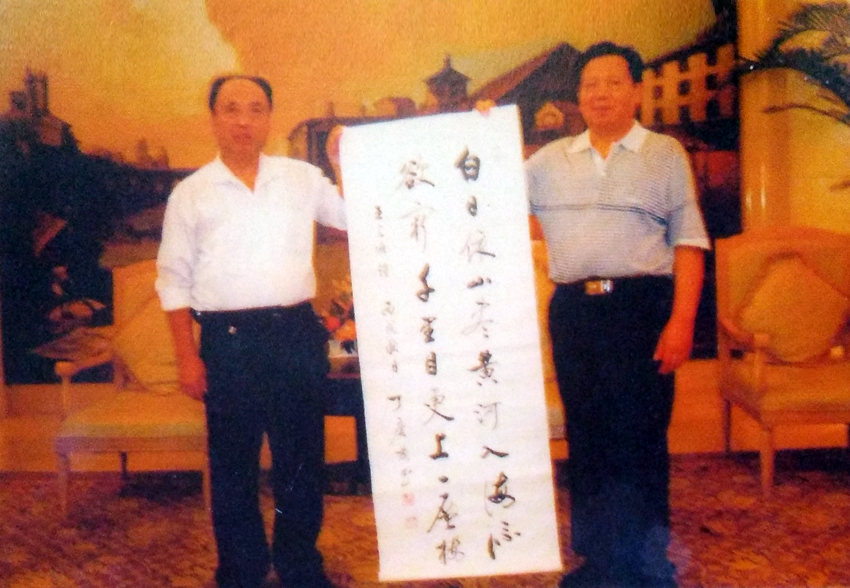 白日依山尽黄河入海流
欲穷千里目更上一层楼
王之涣诗 丙戌秋月